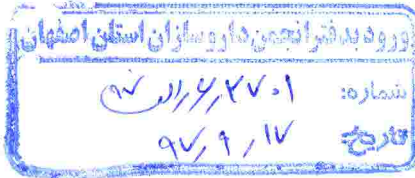 ورود به دفتر انجمن داروسازان استان اصفهان
شماره:
تاریخ: ۹۷/۹/۱۷